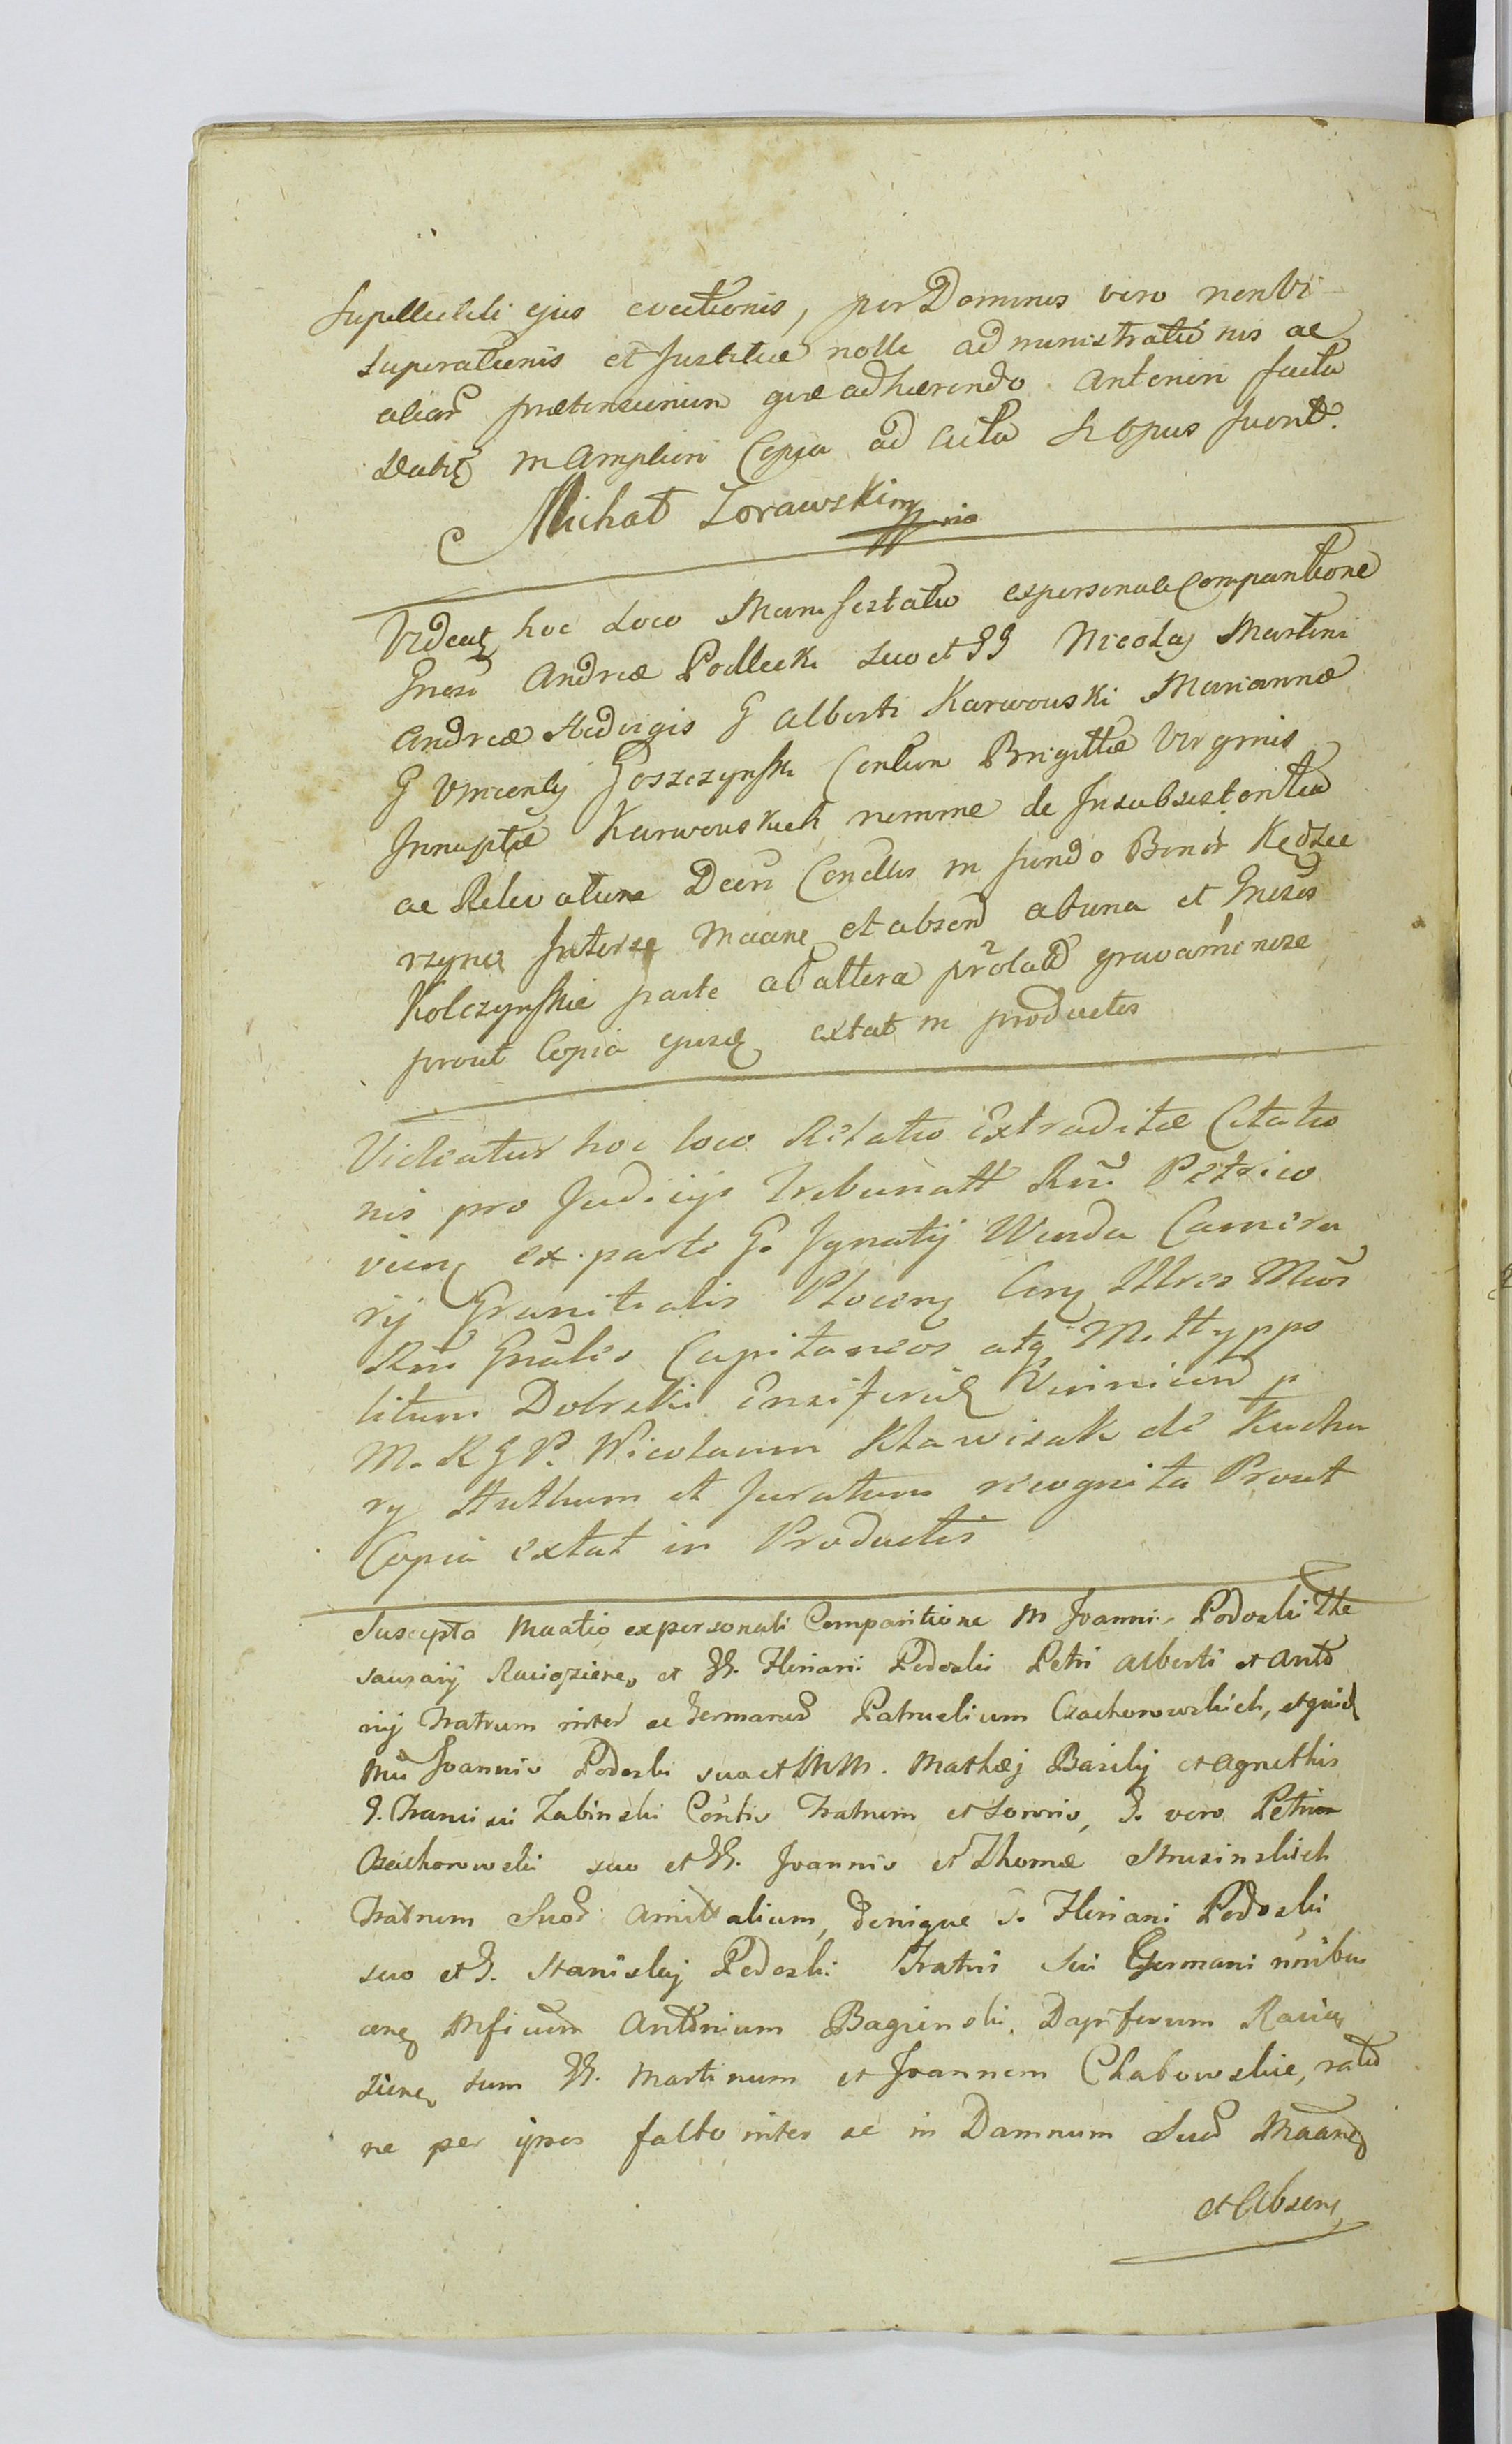 Supellectili ejus evectionis, per Dominos vero non
superationis et Justitiæ nolle administrationis ac
aliar prætensionum quæ adhærendo Anteriori facta
in Ampliori Copia ad Acta si opus fuerit.
Michał Zorawski mp
Videat hoc Loco Manifestatio ex personali Comparitione
Gnesi Andreæ Podlecki suo et GG Nicolaj Martini
Andreæ Hedvigis G Alberti Karwowski Mariannæ
G Vincentij Goszczynski Consortium Brigittæ Virginis
Innuptæ Karwowskich nomine de Insubsistentia
ac Relevatione Decri Condtis in fundo Bonor Kędzie
rzyna Inter se Maane et absen ab una et Gnesos
Kolczynskie parte ab altera prolato gravamine se
prout Copia ejusd extat in productis
Videatur hoc loco Relatio Extraditæ Citatio
nis pro Judicijs Tribunalt Rni Petrico
vien ex parte G. Ignatij Wierda Camera
rij Granitialis Plocen Con Illres Mcos
Rni Gnales Capitaneos atq M. Hyppo
litum Dobrski Ensiferid p
M. R G P. Nicolaum Klawisak de Kucha
ry Huthum et Juratum recognita Prout
Copia extat in Productis
Suscepta Maatio ex personali Comparitione M Joannis Podoski The
saurarij Raciązien, et GG. Floriani Podoski Petri Alberti et Anto
nij Fratrum inter se Germanor Patruelium Czachorowskich, et quid
Mci Joannis Podoski suo et MM. Mathæj Basilij et Agnethis
G. Francisci Zabinski Contis Fratrum et Sororis, G. vero Petri
Czachorowski suo et GG. Joannis et Thomæ Strusinskich
Fratrum Suor Amittalium, denique G. Floriani Podoski
suo et G. Stanislaj Podoski Fratris Sui Germani nnibus
con Mficum Antonium Bagienski Dapiferum Racią
zien, tum GG. Martinum et Joannem Chabowskie, ratio
ne per ipsos facto inter se in Damnum Suor Maane
et Absen